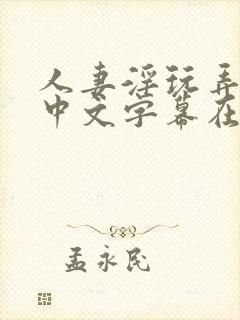 人妻淫玩弄
中文字幕在
孟永民